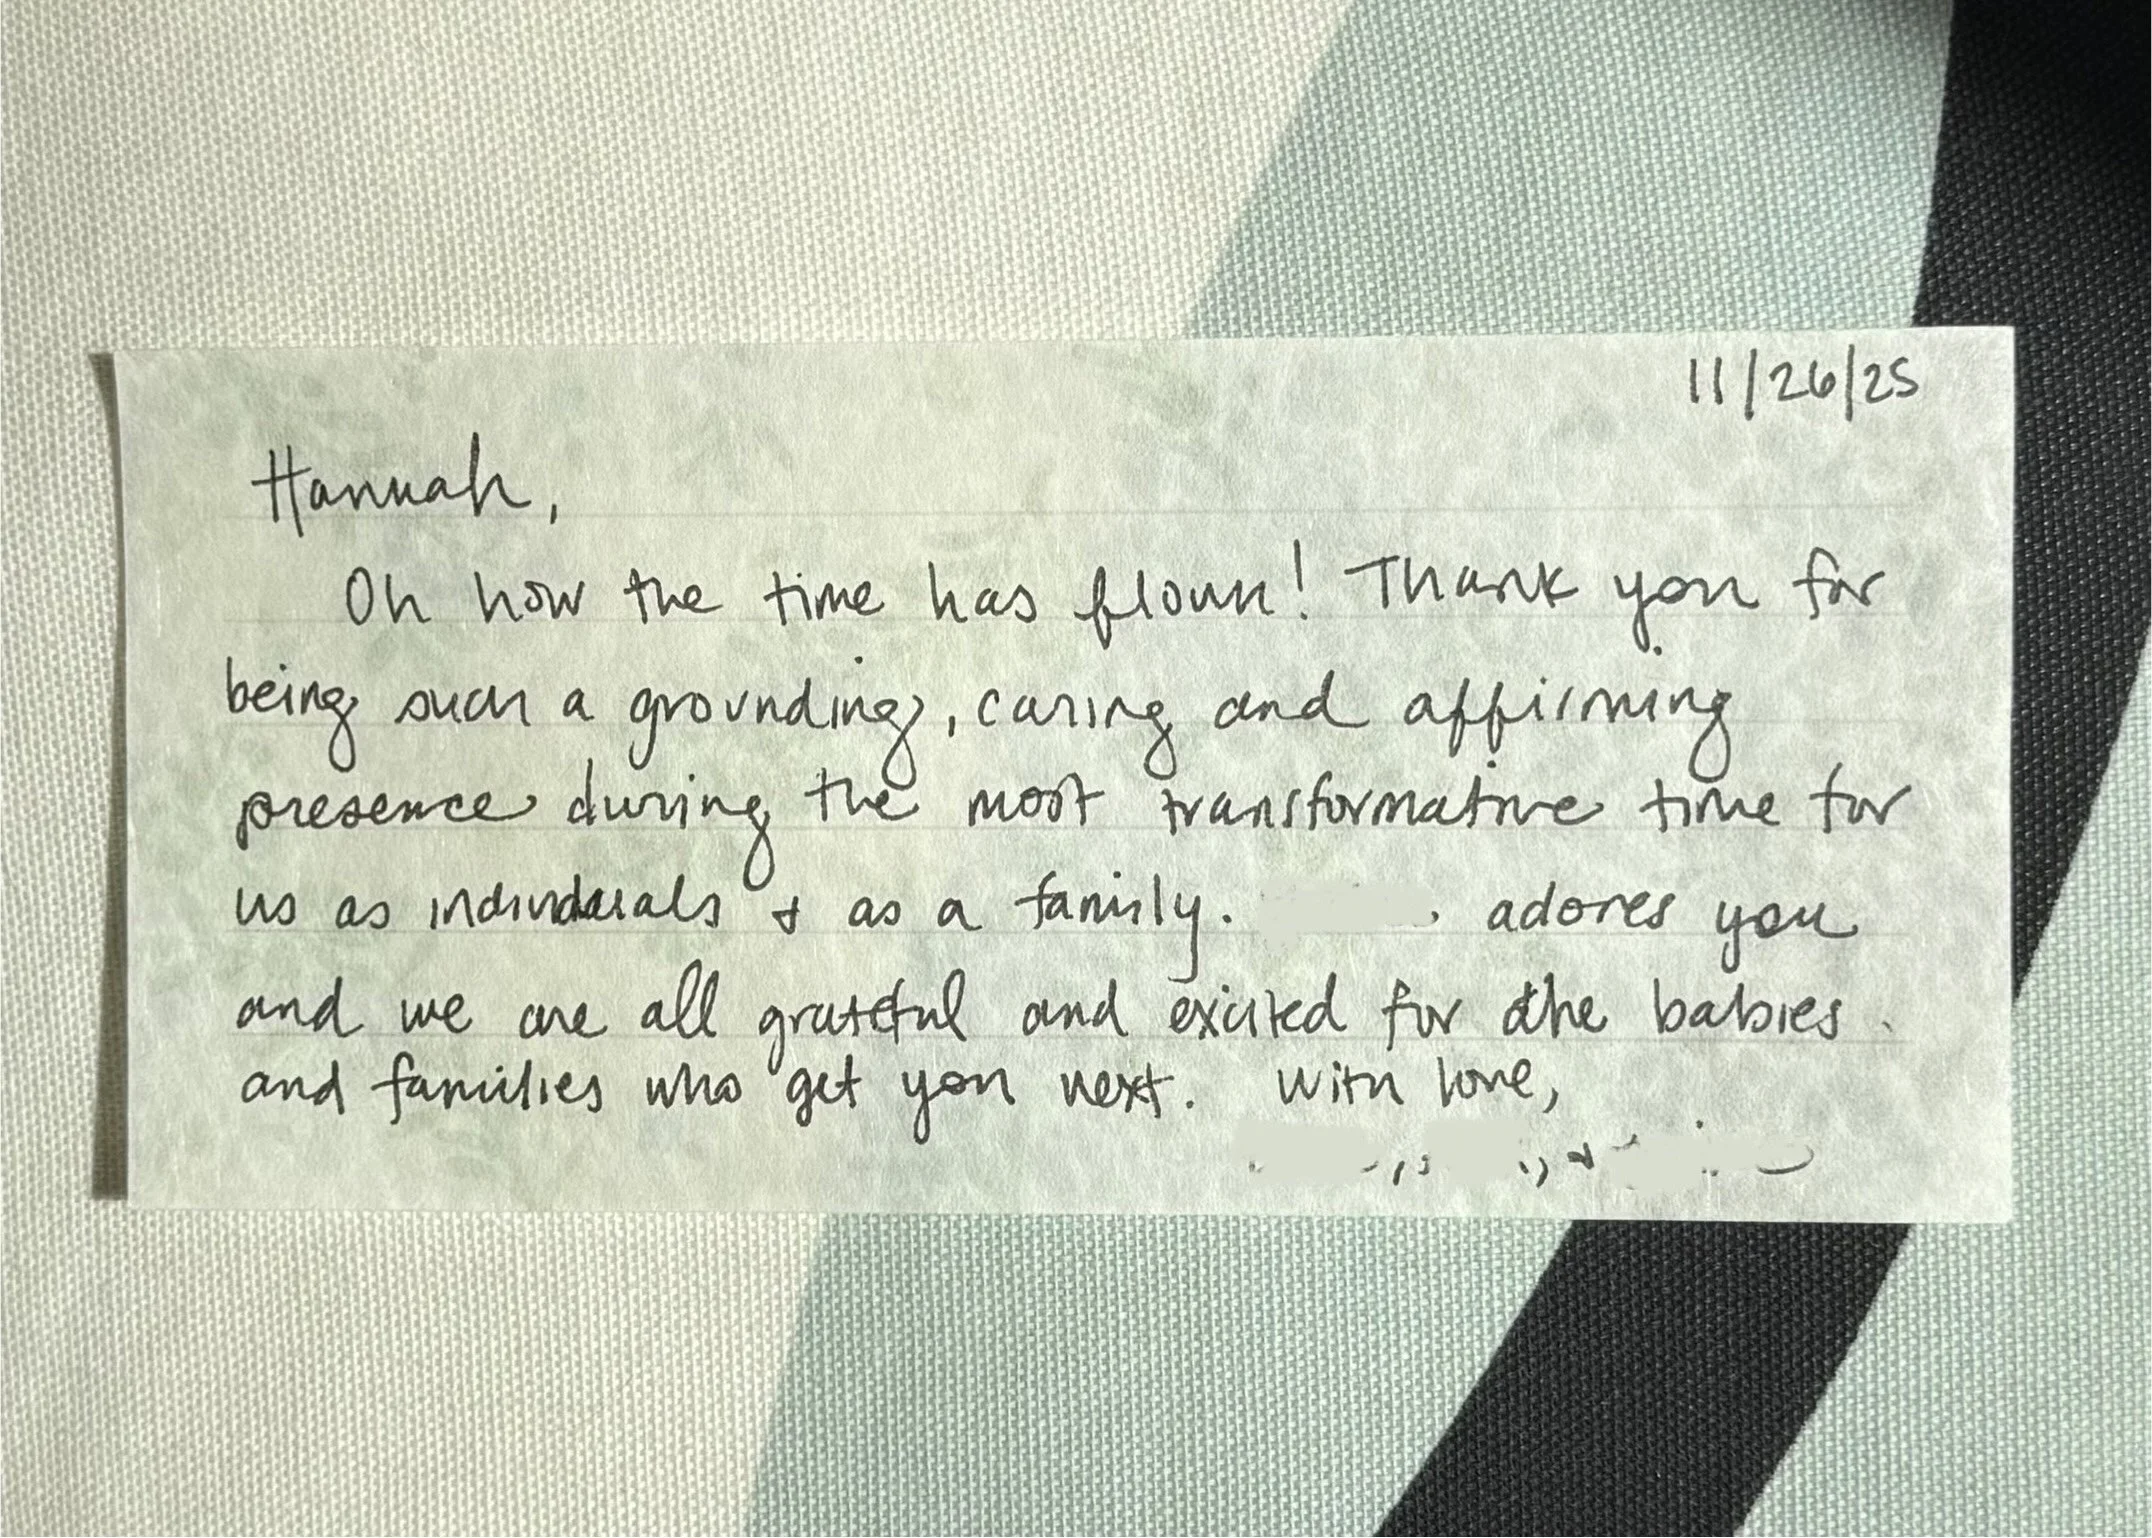 11/26/25
Hannah,
Oh how the time has flown! Thank you for
being such a grounding, caring and affirming
presence during the most transformative time for
us as individuals & as a family. adores you
and we are all grateful and excited for the babies
and families who get you next. With love,